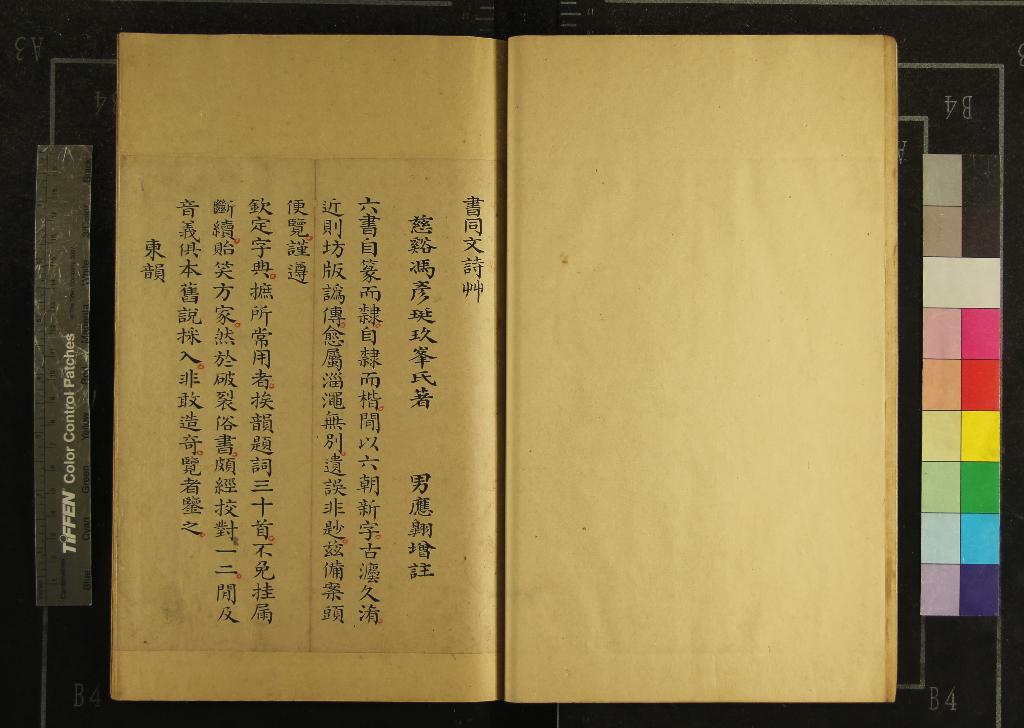 書同文詩艸
慈谿馮彥珽玖峯氏著 男應翱增註
六書自篆而隸自隸而楷間以六朝新字古灋久淆
近則坊版譌傳愈屬淄澠無別遺誤非尟茲備案頭
便覽謹遵
欽定字典摭所常用者挨韻題詞三十首不免挂屚
斷續貽笑方家然於破裂俗書頗經挍對一二閒及
音義俱本舊說採入非敢造奇覽者鑒之
東韻
TIFFEN Color Control Patches
A3
B4
B4
B4
B4